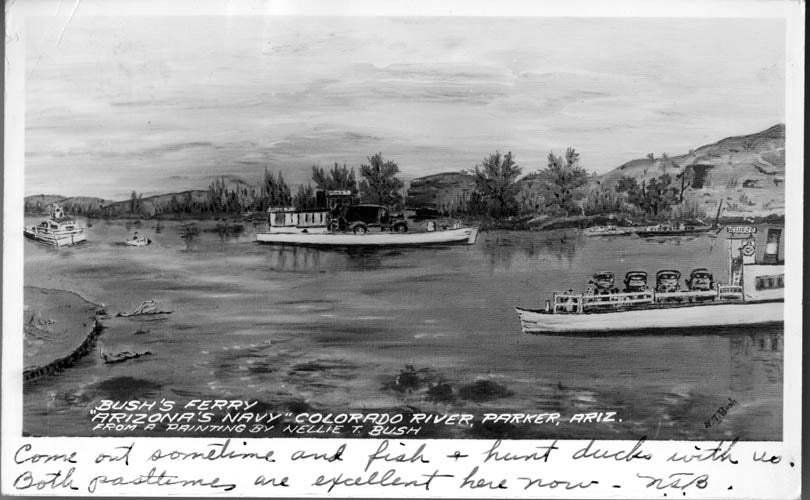 NELLIE T.
N.T. Bush
BUSH'S FERRY
"ARIZONA'S NAVY" COLORADO RIVER, PARKER, ARIZ.
FROM A PAINTING BY NELLIE T. BUSH
Come out sometime and fish + hunt ducks with us.
Both pasttimes are excellent here now - N.T.B.